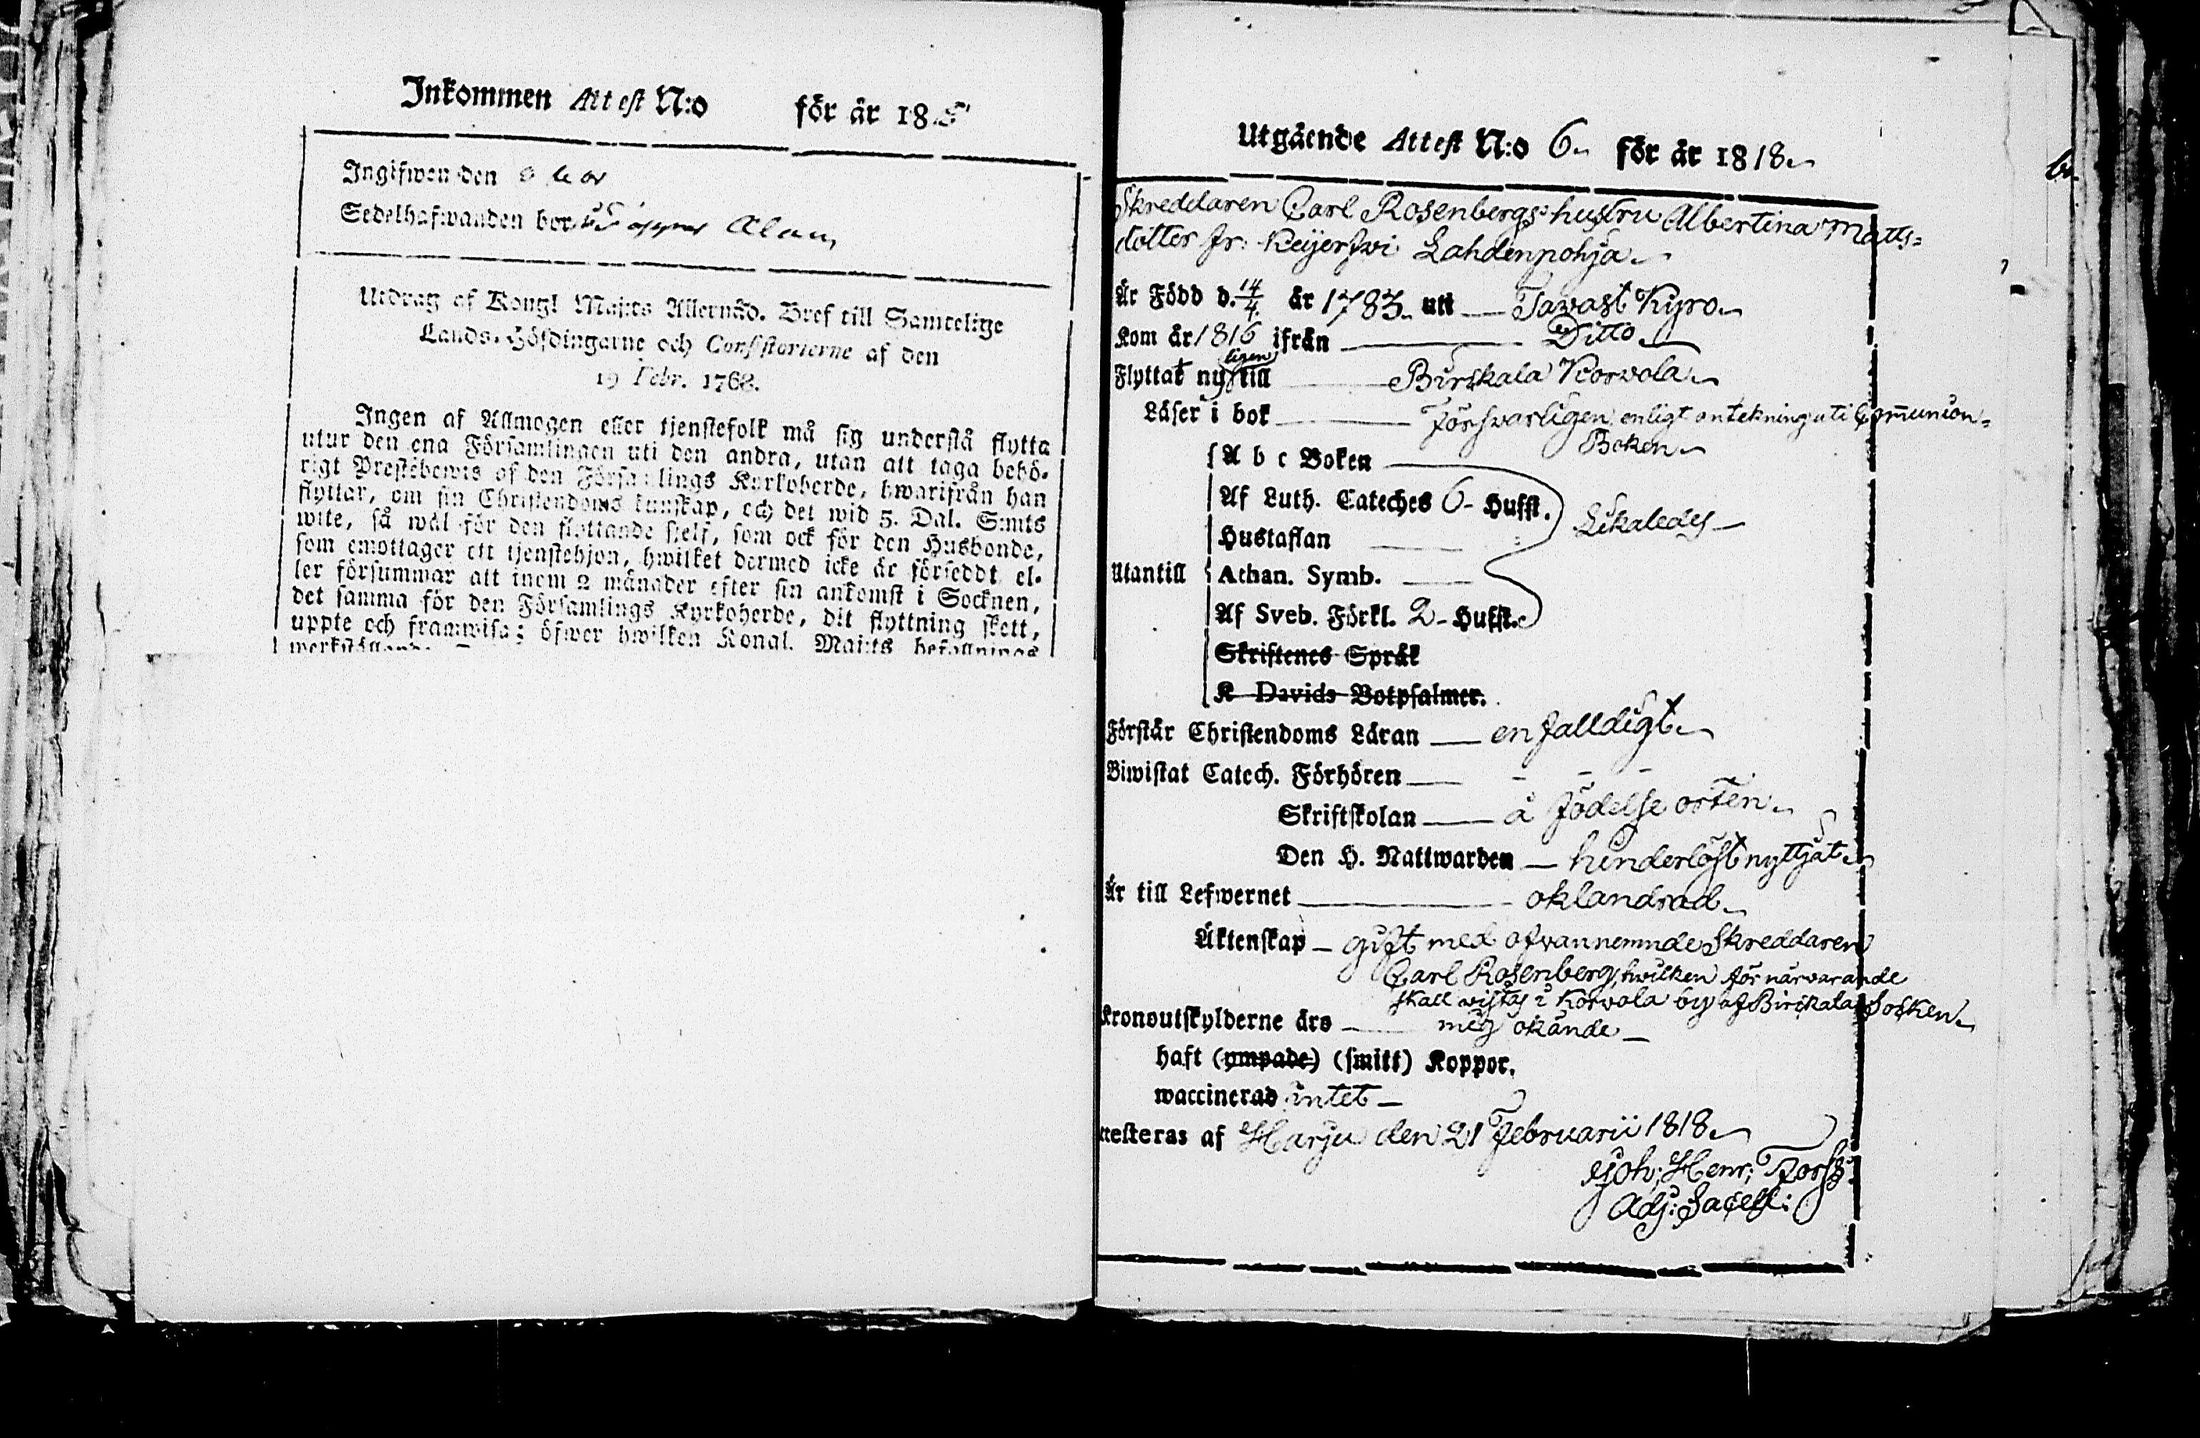 Inkommen Attest N:o för år 18
Ingifwen den
Sedelhafwanden bor
Utdrag af Kongl Maj:ts Allernåd. Bref till Samtelige
Lands-Höfdingarne och Consistorierne af den
19 Febr. 1768.
Ingen af Allmogen eller tjenstefolk må sig understå flytta
utur den ena Församlingen uti den andra, utan att taga behö-
rigt Prestebewis af den Församlings Kyrkoherde, hwarifrån han
flyttar, om sin Christendoms kunskap, och det wid 5. Dal. S:mts
wite, så wäl för den flyttande sjelf, som ock för den Husbonde,
som emottager ett tjenstehjon, hwilket dermed icke är försedt, el-
ler försummar att inom 2 månader efter sin ankomst i Socknen,
det samma för den Församlings Kyrkoherde, dit flyttning skett,
uppte och framwisa; öfwer hwilken Kongl. Maj:ts befallnings
werkställande
Utgående Attest N:o 6 för år 1818
Skreddaren Carl Rosenbergs hustru Albertina Matts=
dotter fr: Keijerswi Lahdenpohja
Är Född d. 14/4 år 1783 uti Tavast Kyro
Kom år 1816 ifrån Ditto
Flyttat nyligen till Birkala Korvola
Läser i bok försvarligen enligt antekning uti Communion=
Boken
A b c Boken
Af Luth. Cateches 6 Hufst.
Hustaflan Likaledes
Utantill Athan. Symb.
Af Sveb. Förkl. 2 Hufst.
Skriftenes Språk
K Davids Botpsalmer.
Förstår Christendoms Läran enfalldigt
Biwistat Catech. Förhören
Skriftskolan å födelse orten
Den H. Nattwarden hinderlöst nyttjat
Är till Lefwernet oklandrad
Äktenskap gift med ofvannemnde Skreddaren
Carl Rosenberg, hwilken för närvarande
skall vistas i Korvola by af Birkala Socken
Kronoutskylderne äro mig okände
haft (ympade) (smitt) Koppor.
waccinerad intet
testeras af Harju den 21 Februarii 1818
Joh: Henr: Forss:
Adj: Sacell: